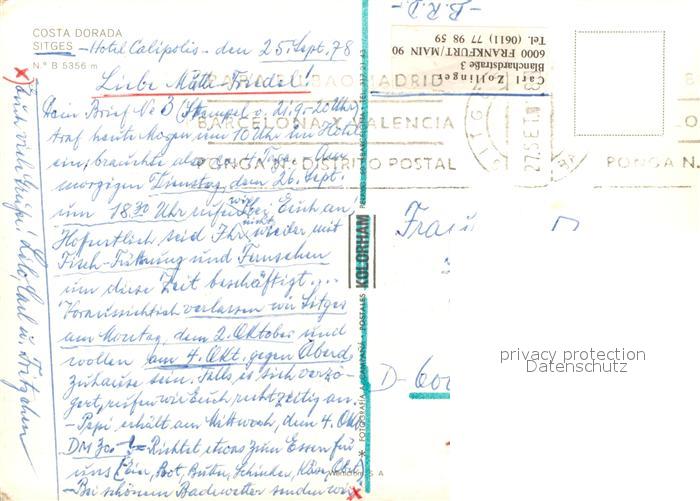 COSTA DORADA
SITGES - Hotel Calipolis - den 25. Sept. 78
N.º B 5356 m
Liebe Mutti-Friedel!
Dein Brief No 3 (Stempel v. 21.9.-20 Uhr)
traf heute Morgen um 10 Uhr im Hotel
ein, brauchte also 4 Tage. Am
morgigen Dienstag, dem 26. Sept.
um 18.30 Uhr rufen wir bei Euch an
Hoffentlich seid Ihr nicht wieder mit
Fisch-Fütterung und Fernsehen
um diese Zeit beschäftigt...
Voraussichtlich verlassen wir Sitges
am Montag, dem 2. Oktober und
wollen am 4. Okt. gegen Abend
zuhause sein. Falls es sich verzö-
gert, rufen wir Euch rechtzeitig an.
- Papi erhält am Mittwoch, dem 4. Okt.
DM 300.- Richtet etwas zum Essen für
uns (Eier, Brot, Butter, Schinken, Käse, Obst)
- Bei schönem Badewetter senden wir x
x) Euch viele Grüße! Carl u.
- B.R.D. -
Carl Zollinger
Blanchardstraße 3
6000 FRANKFURT/MAIN 90
Tel. (0611) 77 98 59
MADRID
BARCELONA Y VALENCIA
PONGA N.º DISTRITO POSTAL
PONGA N.
SITG
KOLORHAM
POSTALES
Frau
D-600
privacy protection
Datenschutz